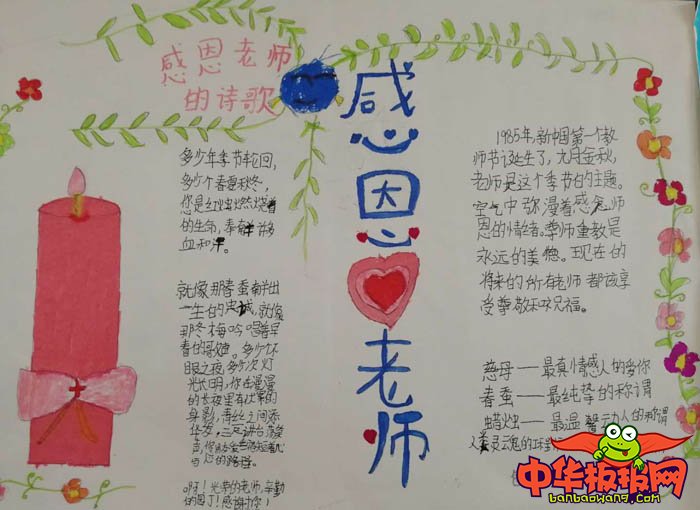 感恩老师
的诗歌
多少年季节轮回,
多少个春夏秋冬,
您是红烛燃烧着
的生命,奉献许多
血和汗。
就像那春蚕献出
一生的忠诚,就像
那冬梅吟唱着早
春的歌声。多少不
眠之夜,多少次灯
光长明,你在漫漫
的长夜里有伏案的
身影,青丝之间添
华发,三尺讲台
呀!光荣的老师,辛勤
的园丁!感谢你们!
感恩老师
1985年,新中国第一个教
师节诞生了,九月金秋,
老师是这个季节的主题。
空气中弥漫着感念师
恩的情绪。尊师重教是
永远的美德。现在的
将来的所有老师都该享
受尊敬和祝福。
慈母——最真情感人的爱你
春蚕——最纯挚的称谓
蜡烛——最温馨动人的称谓
人类灵魂的
中华板报网
banbaowang.com